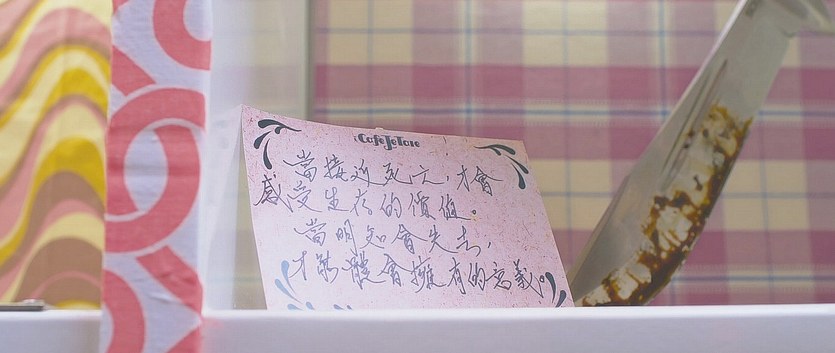 Cafe JeTaie
當接近死亡，才會
感受生存的價值。
當明知會失去，
才能體會擁有的意義。